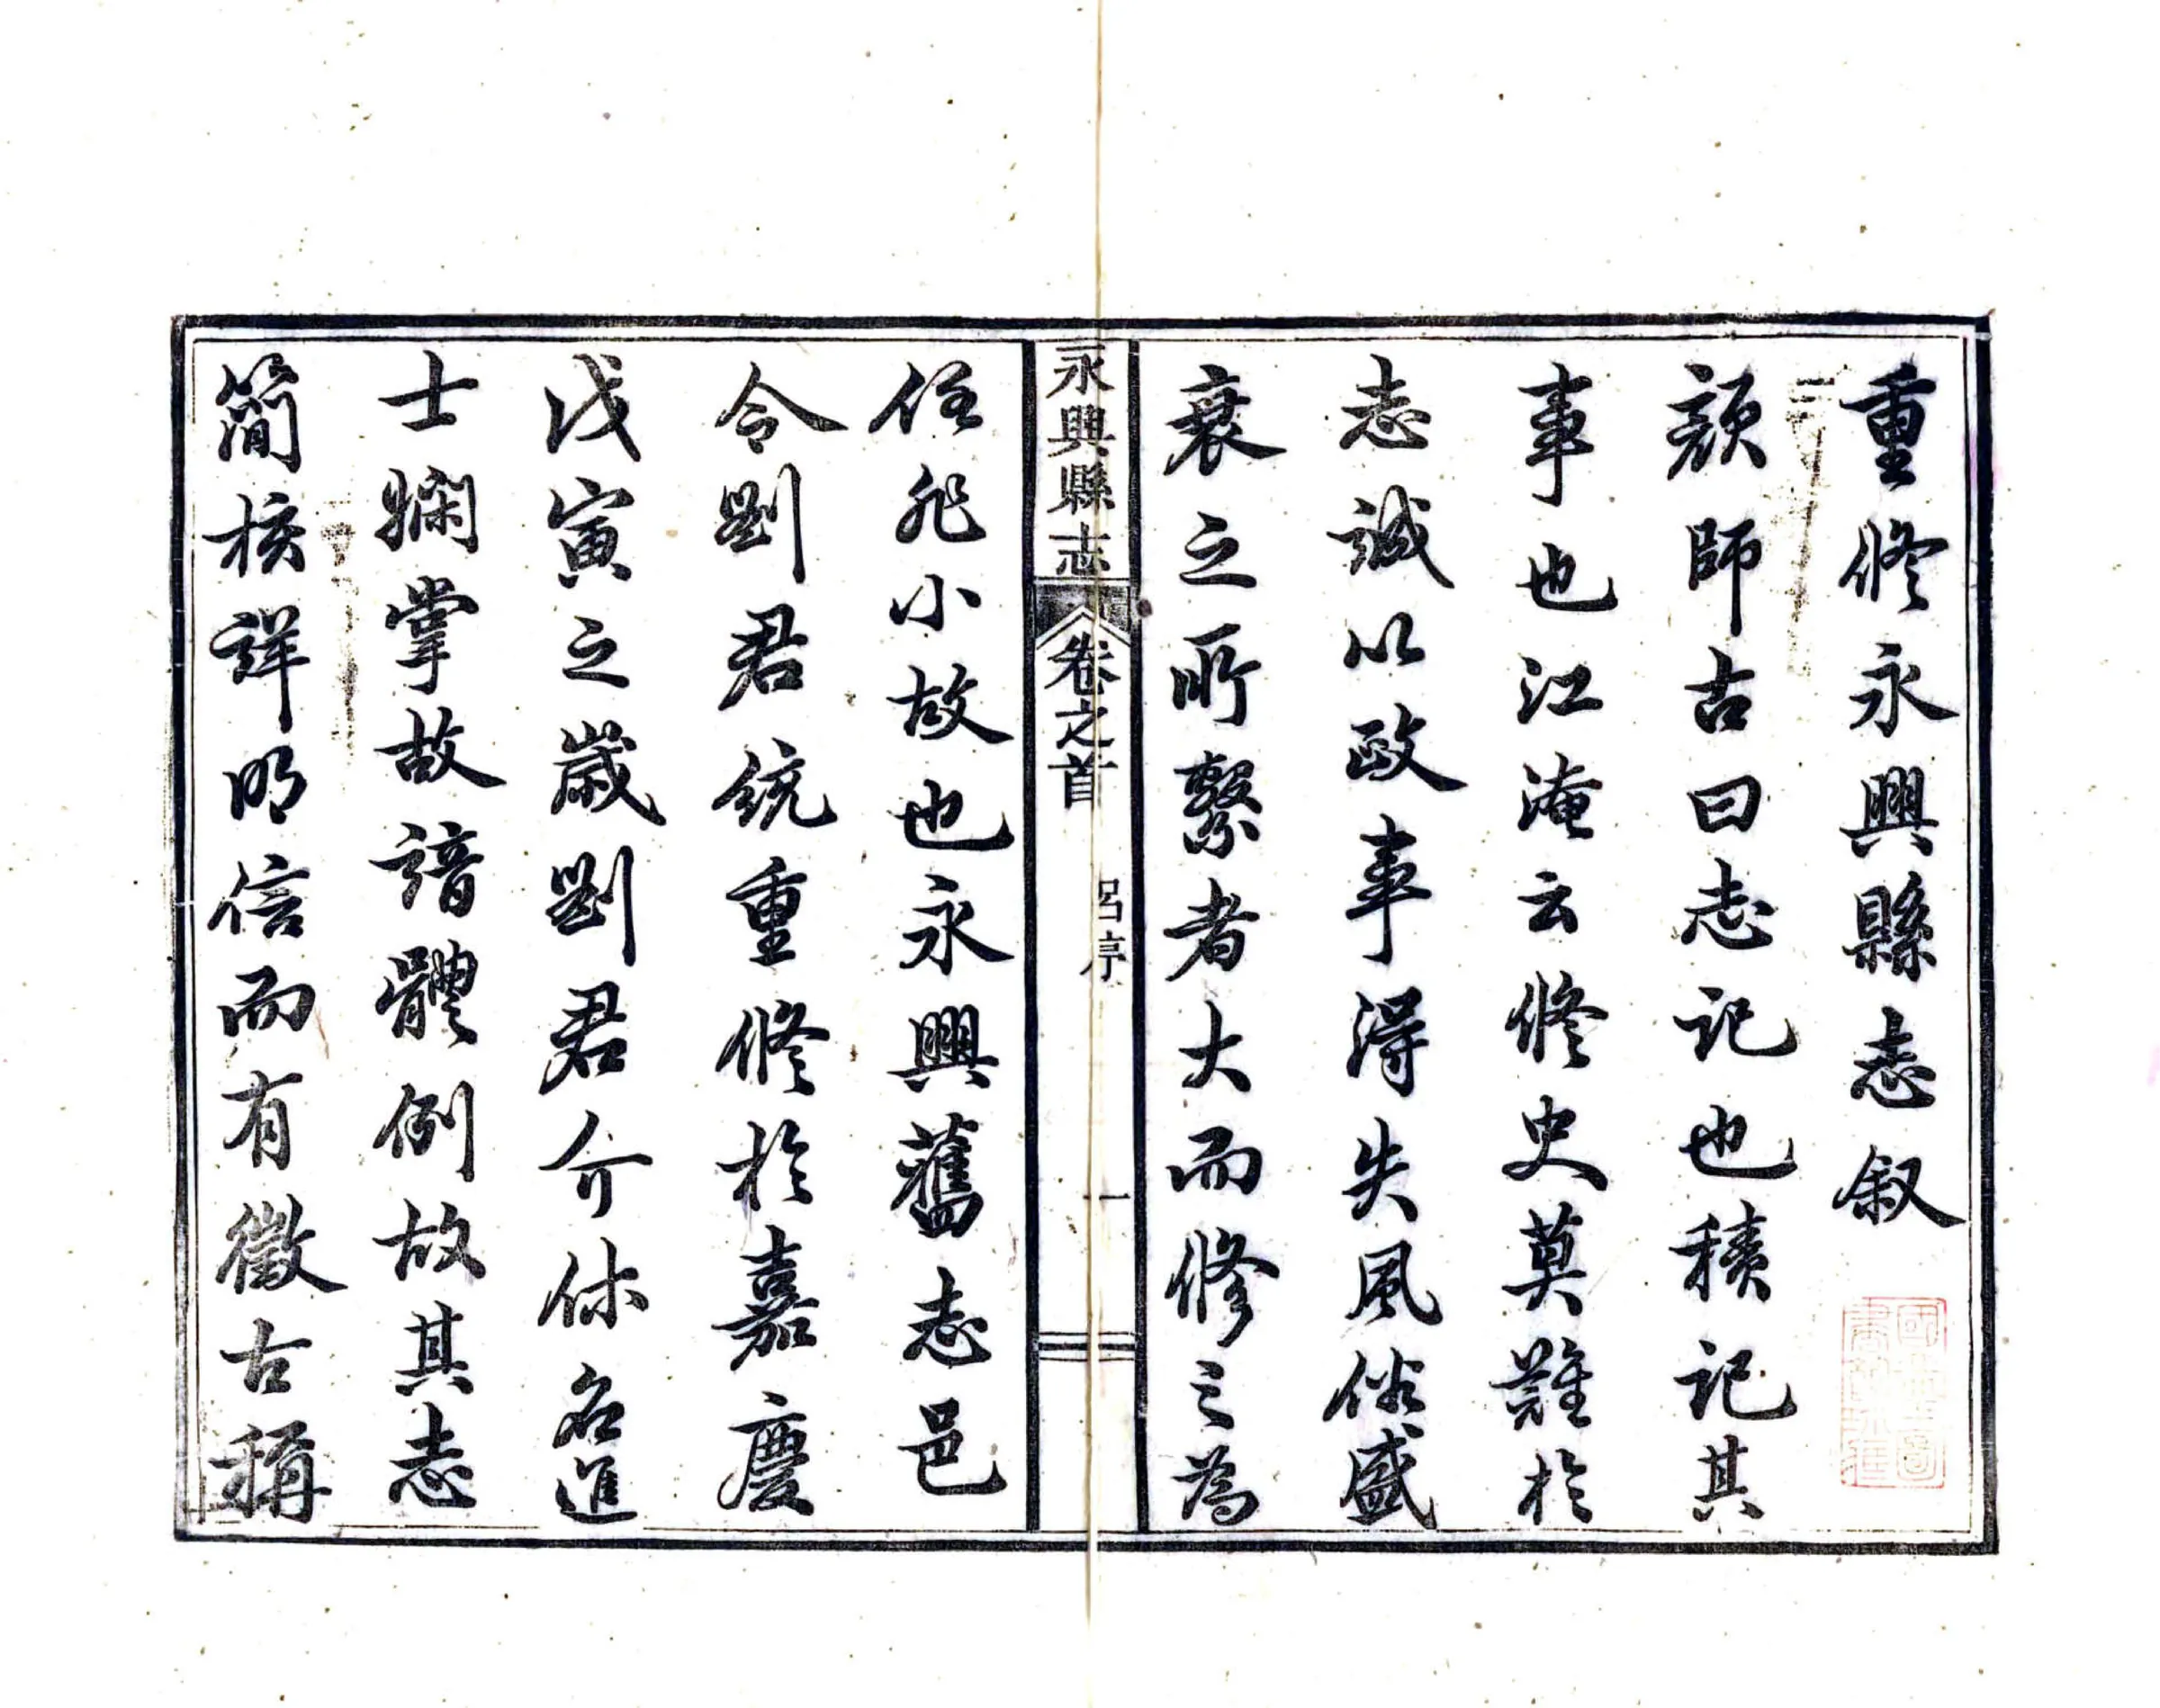 重修永興縣志叙
顔師古曰志記也積記其
事也江淹云修史莫難於
志誠以政事得失風俗盛
衰之所繫者大而修之為
永興縣志 卷之首 呂序 一
任非小故也永興舊志邑
令劉君統重修於嘉慶
戊寅之歲劉君介休名進
士嫻掌故諳體例故其志
簡核詳明信而有徵古稱